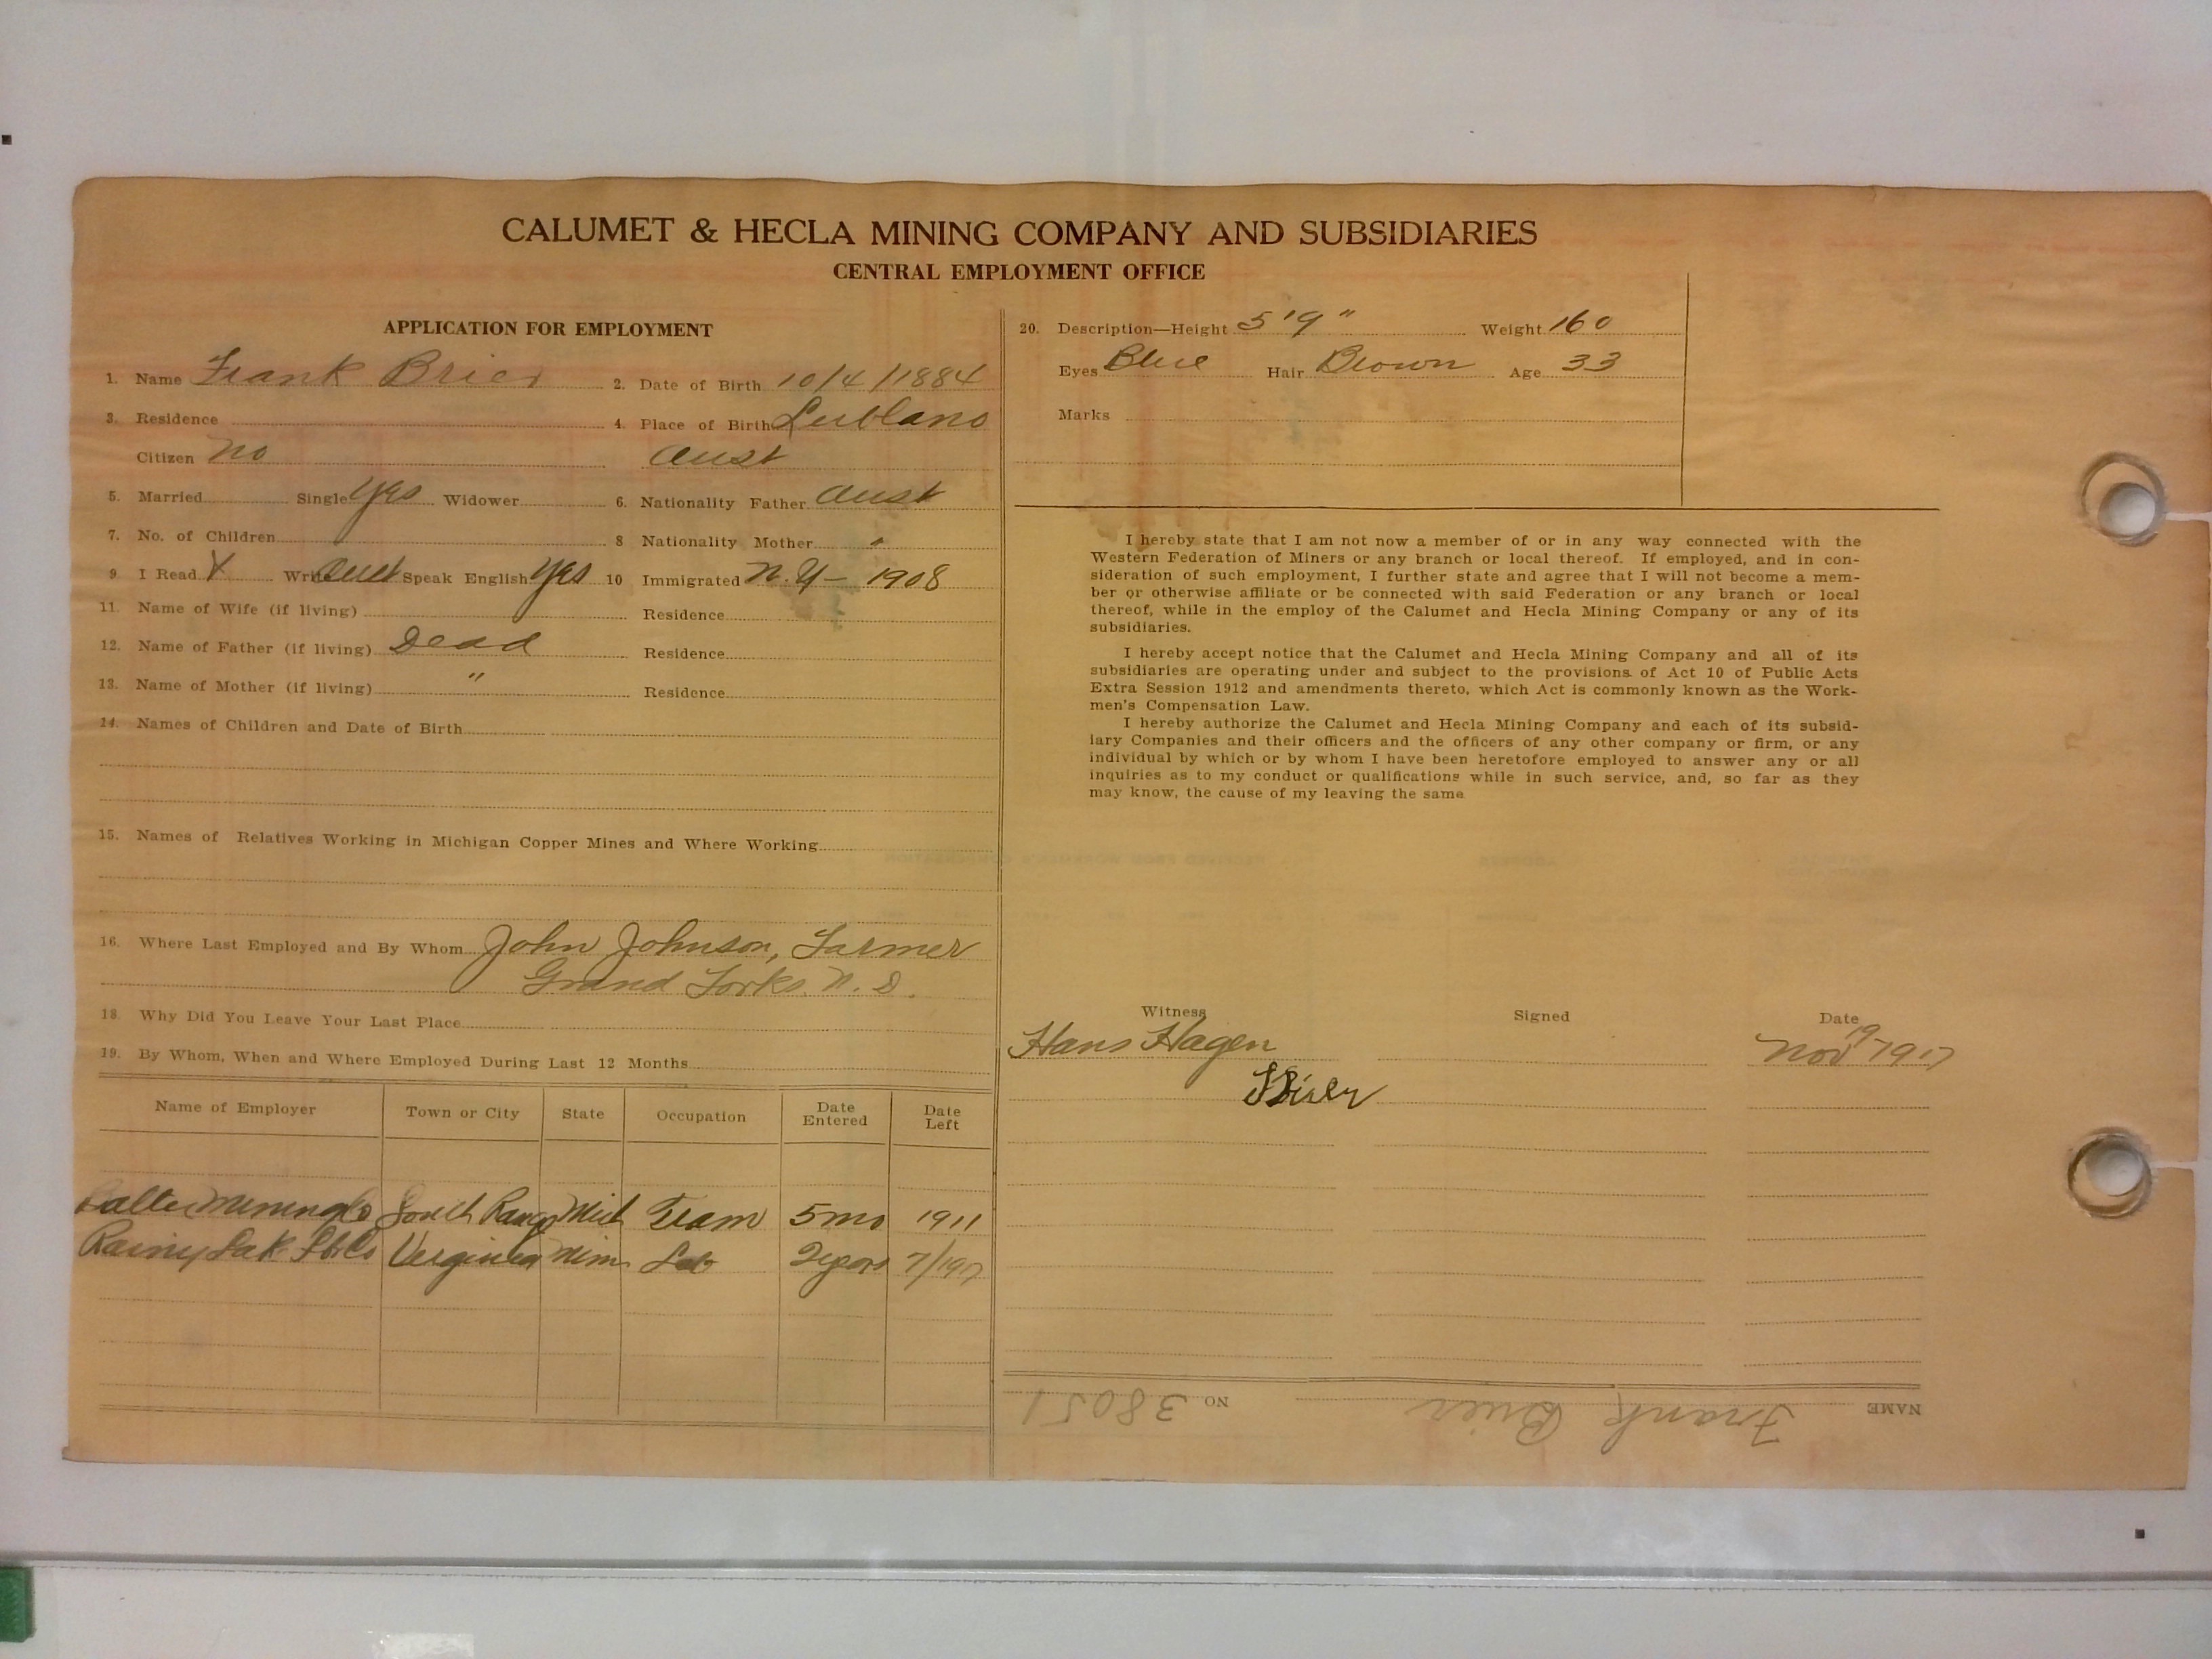 CALUMET & HECLA MINING COMPANY AND SUBSIDIARIES
CENTRAL EMPLOYMENT OFFICE
APPLICATION FOR EMPLOYMENT
1. Name Frank Brier 2. Date of Birth 10/4/1884
3. Residence 4. Place of Birth Lublano
Citizen no Aust
5. Married Single Yes Widower 6. Nationality Father Aust
7. No. of Children 8 Nationality Mother "
9 I Read X Write Speak English Yes 10 Immigrated N.Y - 1908
11. Name of Wife (if living) Residence
12. Name of Father (if living) Dead Residence
13. Name of Mother (if living) " Residence
14. Names of Children and Date of Birth
15. Names of Relatives Working in Michigan Copper Mines and Where Working
16. Where Last Employed and By Whom John Johnson, Farmer
Grand Forks. N. D.
18. Why Did You Leave Your Last Place
19. By Whom, When and Where Employed During Last 12 Months
Name of Employer Town or City State Occupation Date Entered Date Left
Mining Co South Range Mich Tram 5 mo 1911
Rainy Lak Lbr Co Verginia Minn Lab 2 years 7/1917
20. Description—Height 5'9" Weight 160
Eyes Blue Hair Brown Age 33
Marks
I hereby state that I am not now a member of or in any way connected with the
Western Federation of Miners or any branch or local thereof. If employed, and in con-
sideration of such employment, I further state and agree that I will not become a mem-
ber or otherwise affiliate or be connected with said Federation or any branch or local
thereof, while in the employ of the Calumet and Hecla Mining Company or any of its
subsidiaries.
I hereby accept notice that the Calumet and Hecla Mining Company and all of its
subsidiaries are operating under and subject to the provisions of Act 10 of Public Acts
Extra Session 1912 and amendments thereto, which Act is commonly known as the Work-
men's Compensation Law.
I hereby authorize the Calumet and Hecla Mining Company and each of its subsid-
iary Companies and their officers and the officers of any other company or firm, or any
individual by which or by whom I have been heretofore employed to answer any or all
inquiries as to my conduct or qualifications while in such service, and, so far as they
may know, the cause of my leaving the same
Witness Signed Date
Hans Hagen Nov 19 1917
NAME Frank Brier NO 38051